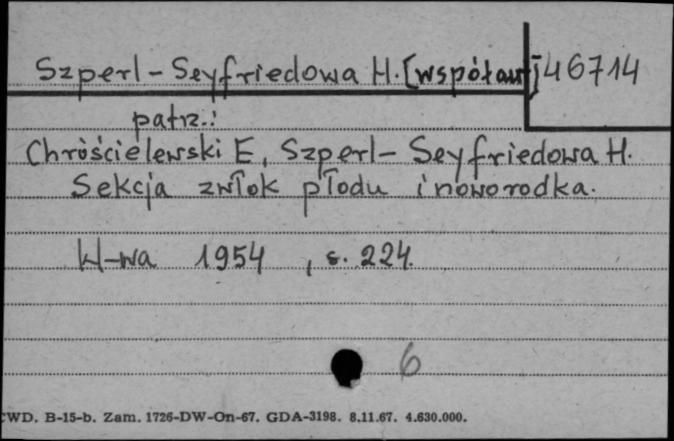 Szperl-Seyfriedowa H. [współaut] 46714
patrz.:
Chróścielewski E, Szperl-Seyfriedowa H.
Sekcja zwłok płodu i noworodka.
W-wa 1954, s. 224.
6
CWD. B-15-b. Zam. 1726-DW-On-67. GDA-3198. 8.11.67. 4.630.000.